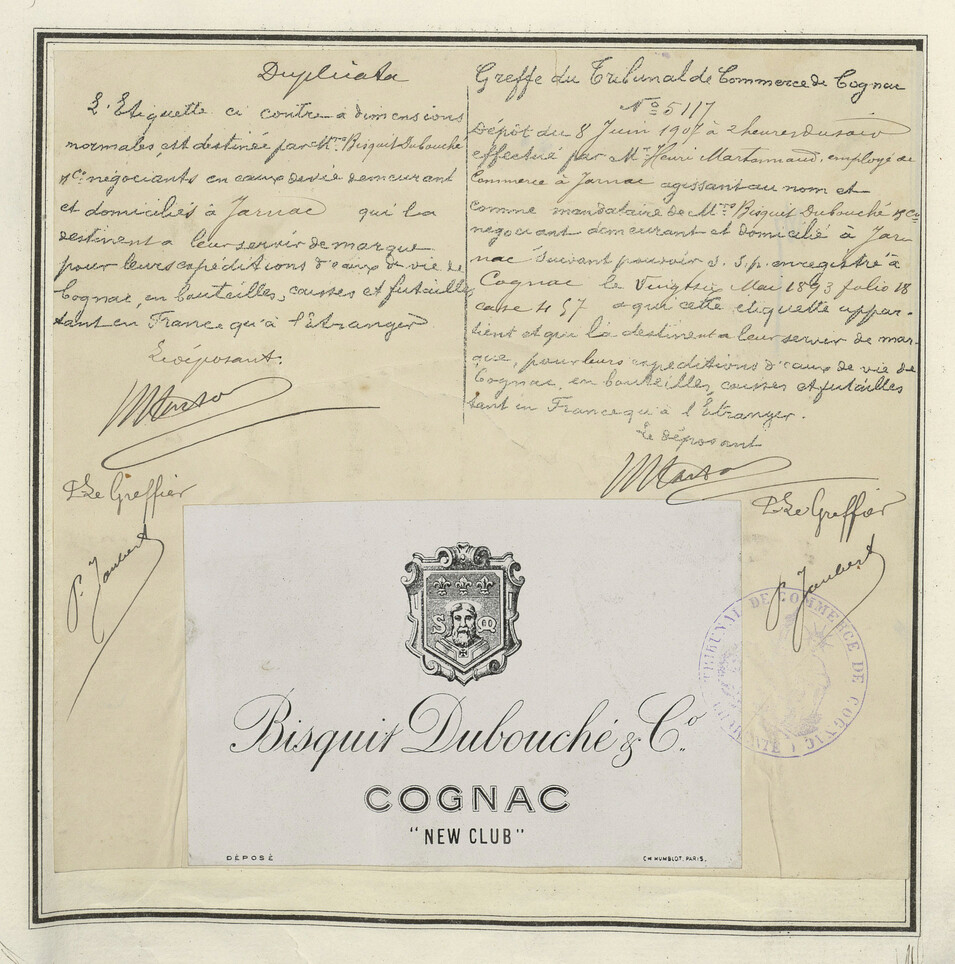 Duplicata
L'Etiquette ci contre à dimensions
normales, est destinée par Mrs Bisquit Dubouché
& Ce négociants en eaux de vie demeurant
et domiciliés à Jarnac qui la
destinent a leur servir de marque
pour leurs expéditions d'eaux de vie de
Cognac, en bouteilles, caisses et futailles
tant en France qu'à l'Etranger
Le déposant.
P. Le Greffier
P. Jaubert
Greffe du Tribunal de Commerce de Cognac
No 5117
Dépôt du 8 Juin à 2 heures du soir
effectué par Mr Henri employé de
Commerce à Jarnac agissant au nom et
comme mandataire de Mrs Bisquit Dubouché & Ce
négociant demeurant et domicilié à Jar
nac suivant pouvoir s. s. p. enregistré à
Cognac le Mai 1893 folio 18
case 457 a qui cette etiquette appar-
tient et qui la destinent a leur server de mar-
que, pour leurs expeditions d'eaux de vie de
Cognac, en bouteilles, caisses et futailles
tant en France qu'à l'Etranger.
Le déposant
P. Le Greffier
P. Jaubert
TRIBUNAL DE COMMERCE DE COGNAC
S Q
Bisquit Dubouché & Co.
COGNAC
"NEW CLUB"
DÉPOSÉ
CH. HUMBLOT. PARIS.